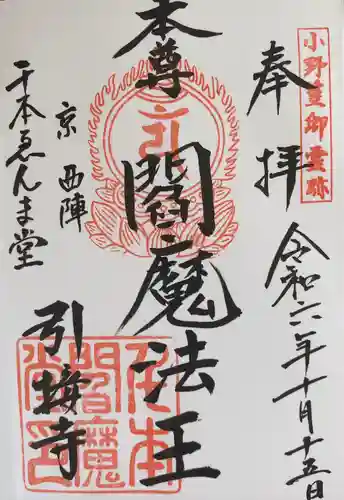 小野篁卿霊跡
奉拝
令和六年十月十五日
本尊
閻魔法王
京西陣
千本ゑんま堂
引接寺